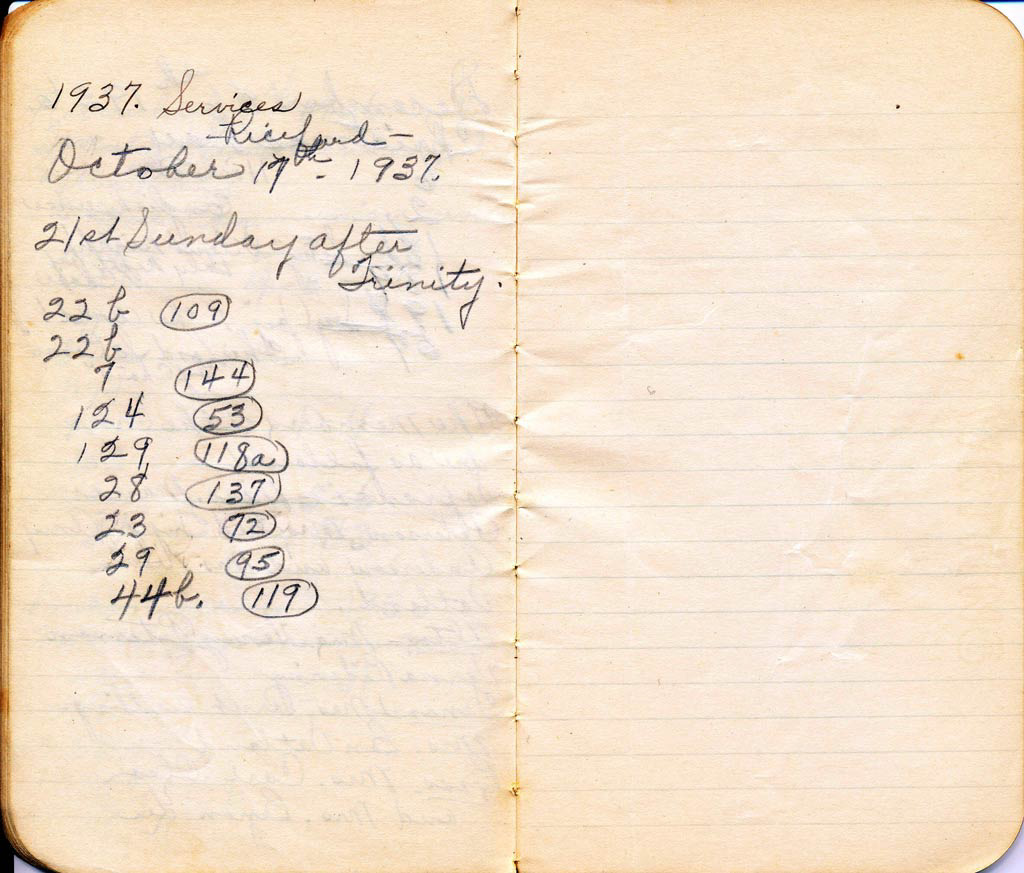 1937. Services
- Riceford -
October 17th - 1937.
21st Sunday after
Trinity.
22 b 109
22 b
7 144
124 53
129 118a
28 137
23 72
29 95
44 b. 119